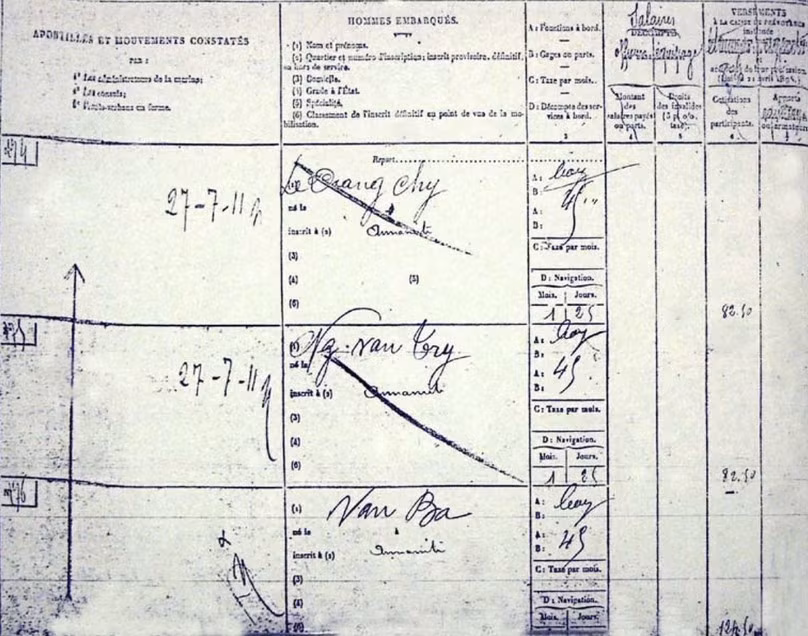 APOSTILLES ET MOUVEMENTS CONSTATÉS
PAR :
1° Les administrateurs de la marine;
2° Les consuls;
HOMMES EMBARQUÉS.
(1) Nom et prénoms.
(2) Quartier et numéro d'inscription; inscrit provisoire, définitif,
ou hors de service.
(3) Domicile.
(4) Grade à l'État.
(5) Spécialité.
(6) Classement de l'inscrit définitif au point de vue de la mo-
bilisation.
A : Fonctions à bord.
B : Gages ou parts.
C : Taxe par mois.
D : Décompte des ser-
vices à bord.
Salaires
DÉCOMPTE
Montant
des
salaires payés
ou parts.
Droits
des invalides
(3 p. 0/0.
taxe).
VERSEMENTS
À LA CAISSE DE PRÉVOYANCE
Cotisations
des
participants.
Apports
474
27-7-11
Report
(1) Le Quang Chy
né le
inscrit à (2) Annamite
(3)
(4) (5)
(6)
A : boy
B : 45
A :
B :
C : Taxe par mois.
D : Navigation.
Mois. Jours.
1 25
82.50
475
27-7-11
(1) Ng. van Try
né le
inscrit à (2) Annamit
(3)
(4)
(6)
A : boy
B :
A : 45
B :
C : Taxe par mois.
D : Navigation.
Mois. Jours.
1 25
82.50
476
(1) Van Ba
né le à
inscrit à (2) Annamite
(3)
(4)
(6)
A : boy
B :
A : 45
B :
C : Taxe par mois.
D : Navigation.
Mois. Jours.